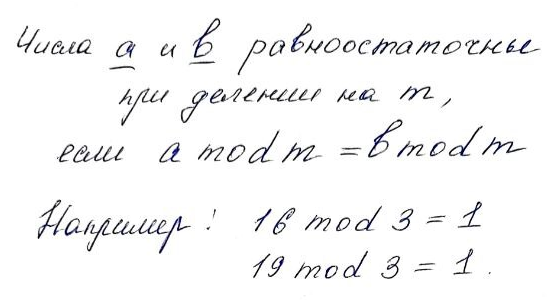 Числа a и b равноостаточные
при делении на m,
если a mod m = b mod m
Например: 16 mod 3 = 1
19 mod 3 = 1.